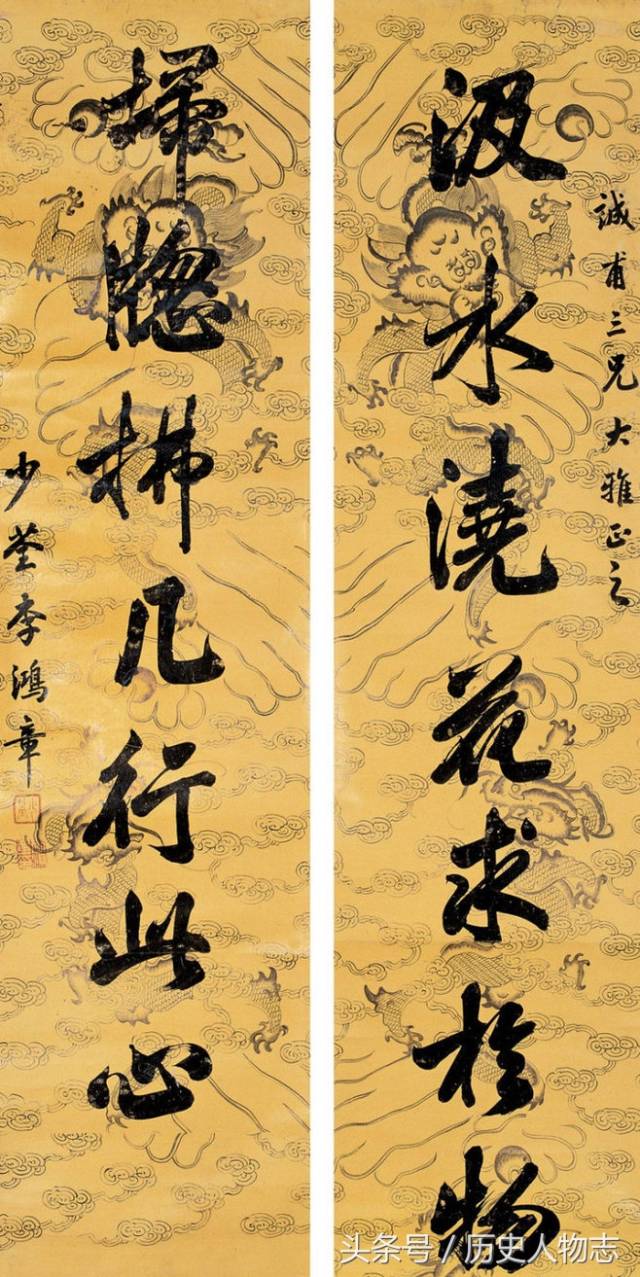 誠甫三兄大雅正之
汲水澆花求於物
掃牕拂几行此心
少荃李鴻章
头条号 / 历史人物志